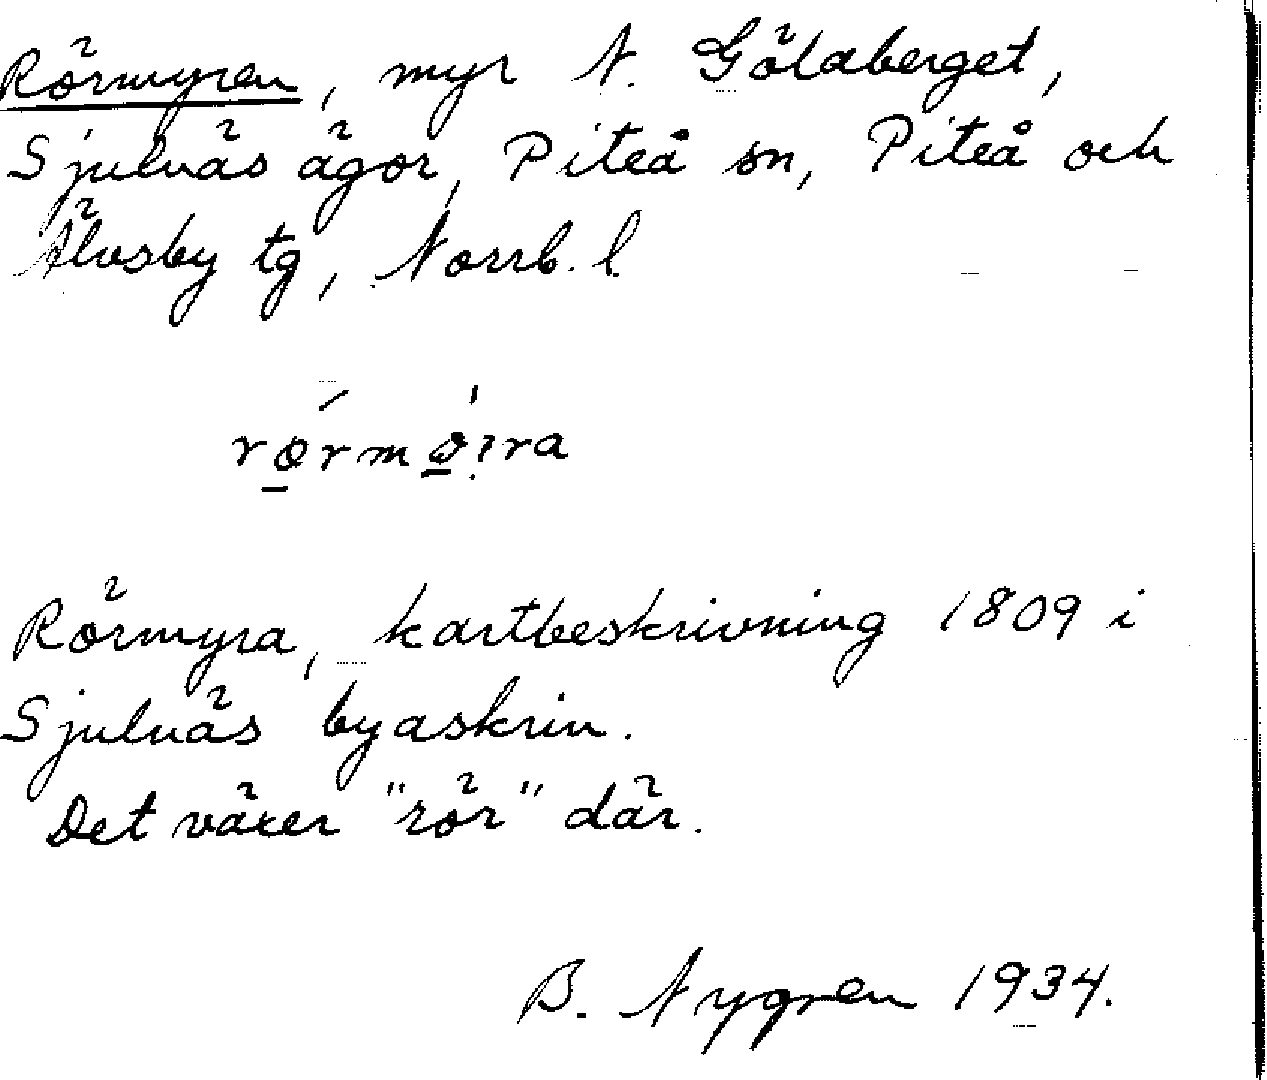 Rörmyren, myr N. Göldaberget,
Sjulnäs ägor, Piteå sn, Piteå och
Älvsby tg, Norrb. l

Rörmyra, kartbeskrivning 1809 i
Sjulnäs byaskrin.
Det växer "rör" där.
B. Nygren 1934.